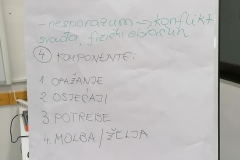 - nesporazum → konflikt
svađa, fizički obračun
④ KOMPONENTE:
1. OPAŽANJE
2. OSJEĆAJI
3 POTREBE
4. MOLBA/ŽELJA